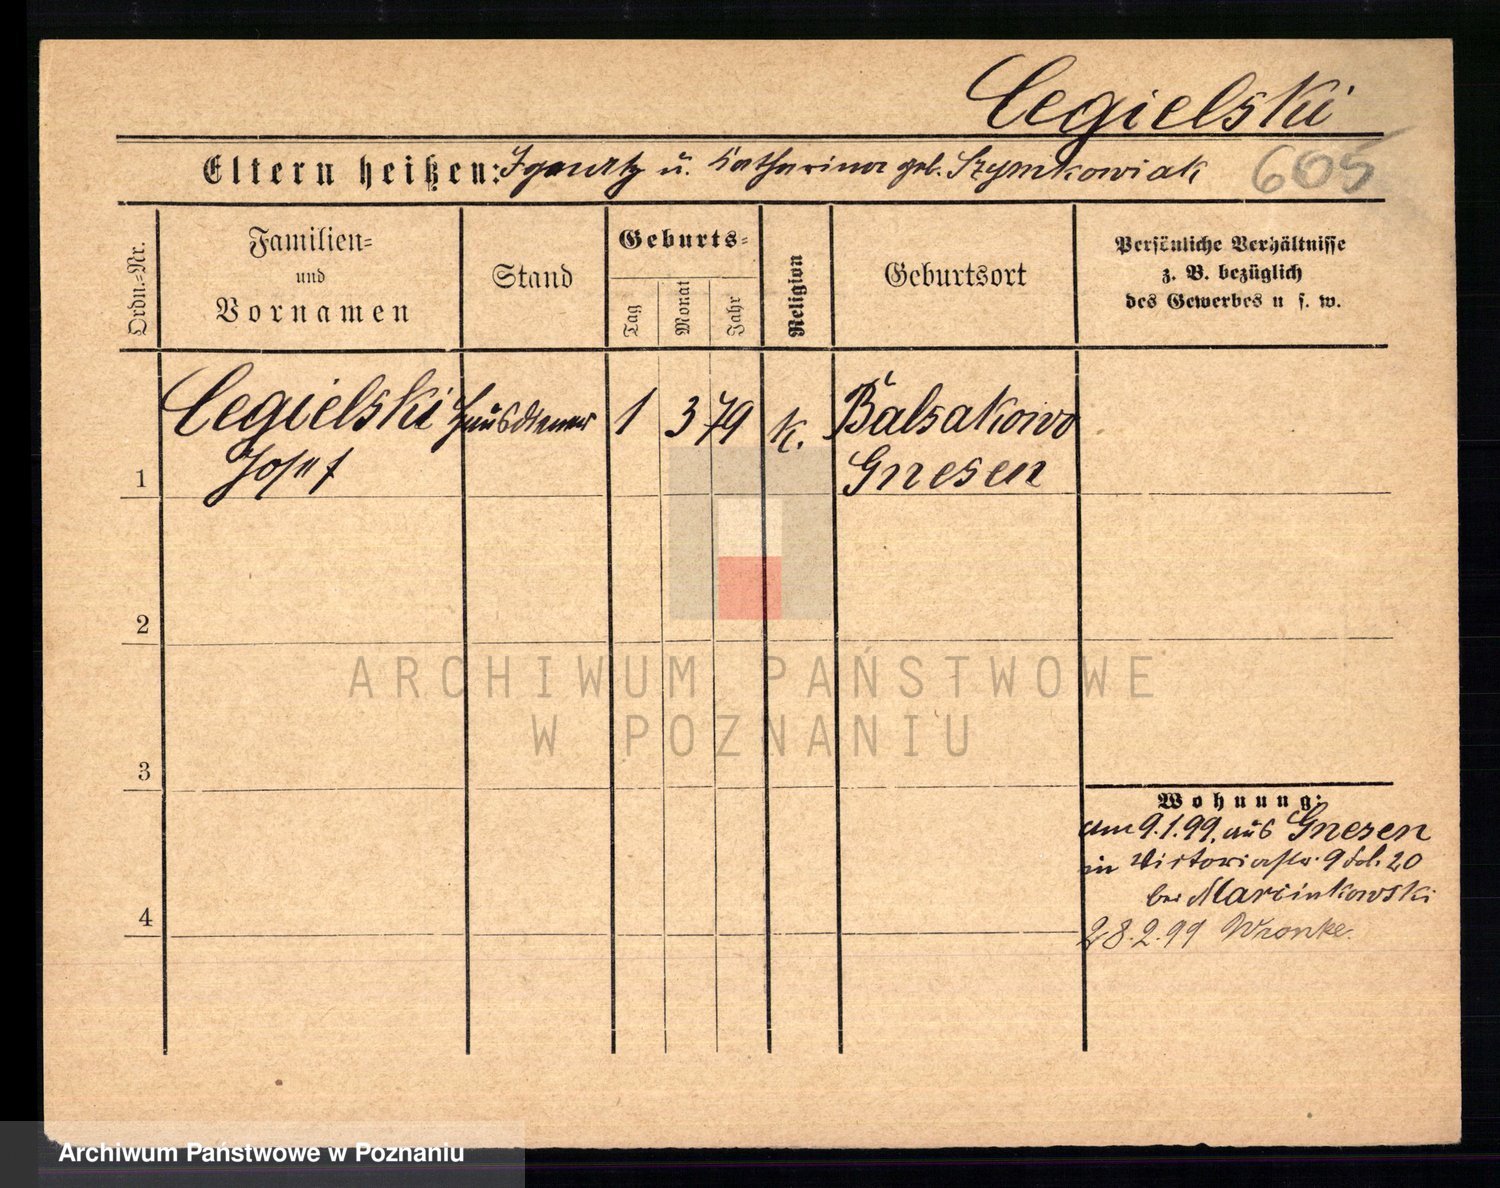 Cegielski
Eltern heißen: Ignatz u. Katharina geb. Szymkowiak 605
Ordn.-Nr.
Familien-
und
Vornamen
Stand
Geburts-
Tag
Monat
Jahr
Religion
Geburtsort
Persönliche Verhältnisse
z. B. bezüglich
des Gewerbes u. s. w.
Cegielski Hausdiener 1 3 79 k. Balsakowo
1 Josef Gnesen
2
3
4
Wohnung:
am 9.1.99. aus Gnesen
in Victoriastr. 9 20
bei Marcinkowski
28.2.99 Wronke.
ARCHIWUM PAŃSTWOWE
W POZNANIU
Archiwum Państwowe w Poznaniu